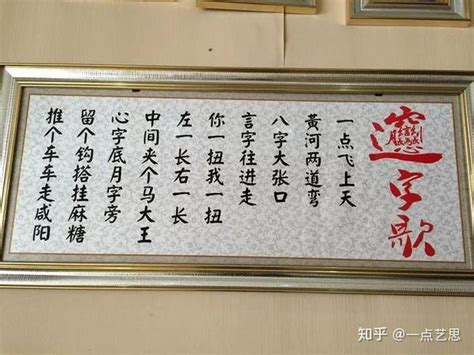 𰻝字歌
一点飞上天
黄河两道弯
八字大张口
言字往进走
你一扭我一扭
左一长右一长
中间夹个马大王
心字底月字旁
留个钩搭挂麻糖
推个车车走咸阳
知乎 @一点艺思